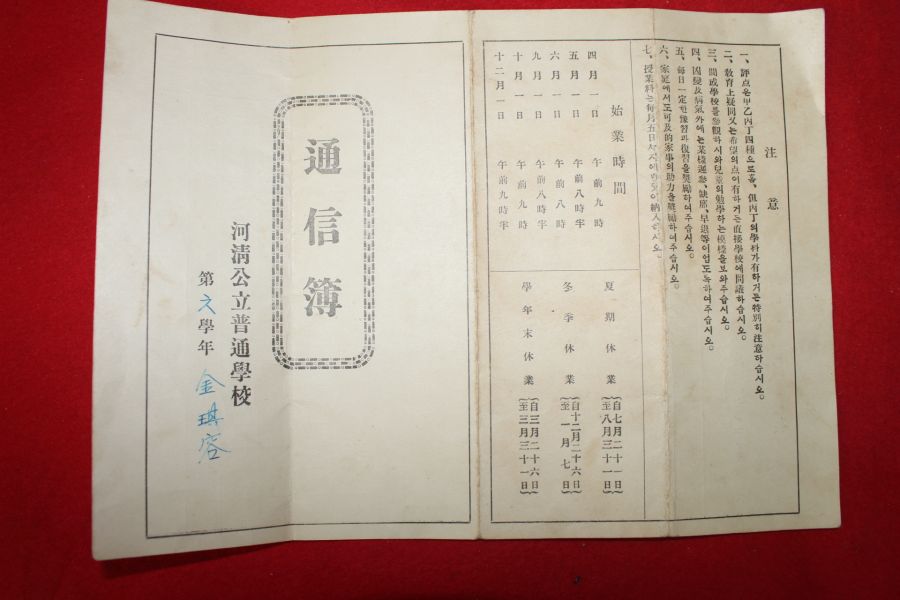 注意
一、評点은甲乙丙丁四種으로홈、但丙丁의學科가有하거든特別히注意하십시오。
二、敎育上疑問又는希望의点이有하거든直接學校에問議하십시오。
三、間或學校를參觀하시와兒童의勉學하는模樣을보와주십시오。
四、凶變及病氣外에는遲參、缺席、早退等이업도록하여주십시오。
五、每日一定한豫習과復習을奬勵하여주십시오。
六、家庭에서도可及的家事의助力을奬勵하여주십시오。
七、授業料는每月五日納入하십시오。
始業時間
四月一日 午前九時
五月一日 午前八時半
六月一日 午前八時
九月一日 午前八時半
十月一日 午前九時
十二月一日 午前九時半
夏期休業 自七月二十一日 至八月三十一日
冬季休業 自十二月二十六日 至一月七日
學年末休業 自三月二十六日 至三月三十一日
通信簿
河淸公立普通學校
第六學年 金琪容